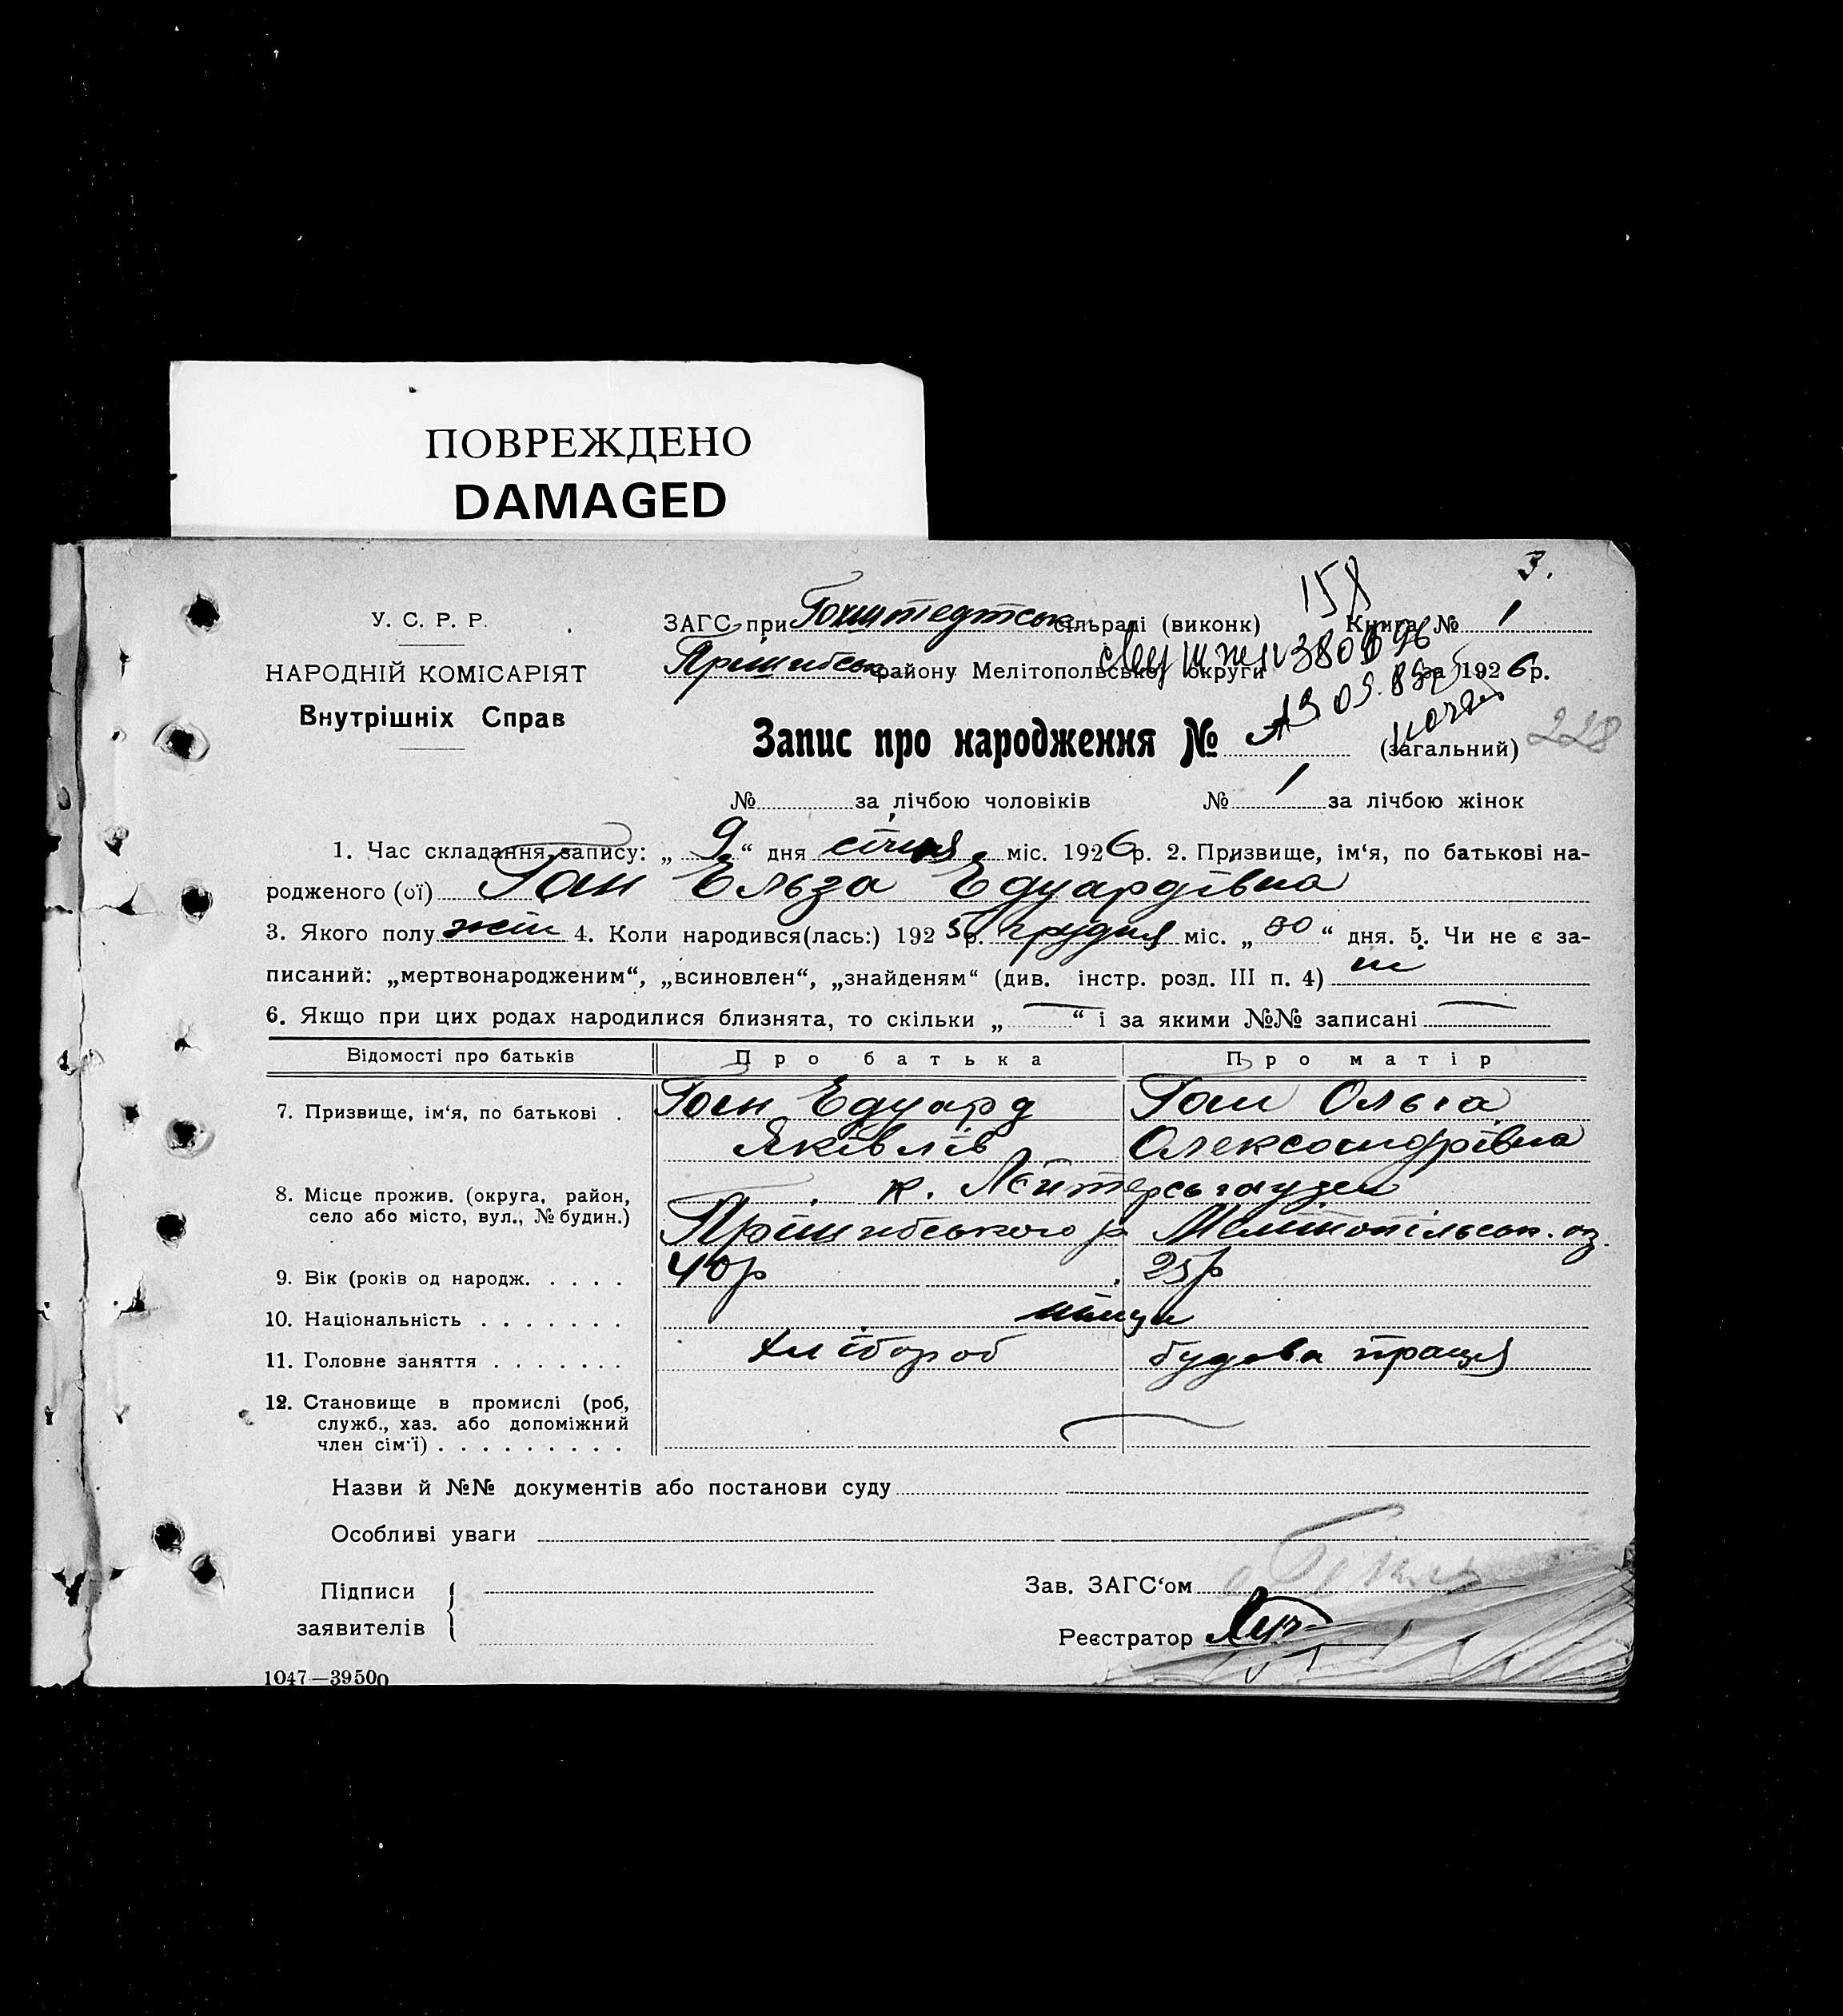 ПОВРЕЖДЕНО
DAMAGED
3.
158
У. С. Р. Р.
НАРОДНІЙ КОМІСАРІЯТ
Внутрішніх Справ
ЗАГС при Гохштедтськ сільраді (виконк) Книга № 1
Пришибськ району Мелітопольської округи за 1926 р.
Запис про народження № (загальний) 228
№ за лічбою чоловіків № 1 за лічбою жінок
1. Час складання запису: „ 9 “ дня січня міс. 1926 р. 2. Призвище, ім‘я, по батькові на-
родженого (ої) Ган Ельза Едуардівна
3. Якого полу жін 4. Коли народився(лась:) 1925 р. грудня міс. „ 30 “ дня. 5. Чи не є за-
писаний: „мертвонародженим“, „всиновлен“, „знайденям“ (див. інстр. розд. III п. 4) ні
6. Якщо при цих родах народилися близнята, то скільки „ — “ і за якими №№ записані —
Відомості про батьків Про батька Про матір
7. Призвище, ім‘я, по батькові . Ган Едуард Ган Ольга
Яківлів Олександрівна
8. Місце прожив. (округа, район, к. Лейтерсьгаузен
село або місто, вул., № будин.) Пришибського р Мелітопільськ. ок.
9. Вік (років од народж. . . . . 40 р 25 р
10. Національність . . . . . . . німци
11. Головне заняття . . . . . . . хлібороб будова праця
12. Становище в промислі (роб,
служб., хаз. або допоміжний
член сім‘ї) . . . . . . . . . —
Назви й №№ документів або постанови суду
Особливі уваги
Підписи
заявителів
Зав. ЗАГС‘ом
Реєстратор
1047—39500